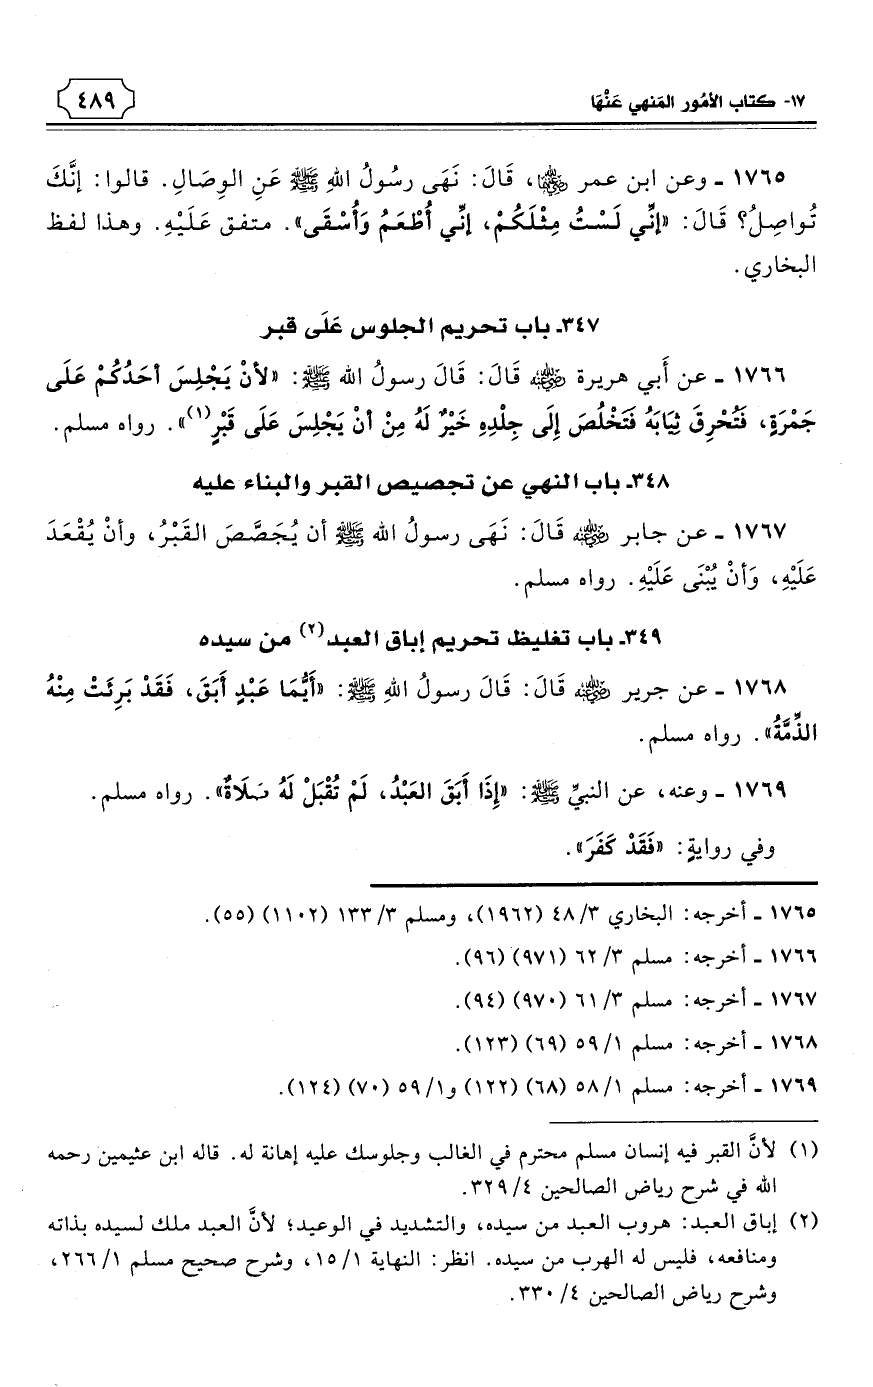 ١٧- كتاب الأمُور المَنهي عَنْهَا
٤٨٩
١٧٦٥ - وعن ابن عمر رضي الله عنهما، قَالَ: نَهَى رسُولُ اللهِ ﷺ عَنِ الوِصَالِ. قالوا: إنَّكَ
تُواصِلُ؟ قَالَ: «إنِّي لَسْتُ مِثْلَكُمْ، إنِّي أُطْعَمُ وَأُسْقَى». متفق عَلَيْهِ. وهذا لفظ
البخاري.
٣٤٧- باب تحريم الجلوس عَلَى قبر
١٧٦٦ - عن أَبي هريرة رضي الله عنه قَالَ: قَالَ رسولُ الله ﷺ: «لأنْ يَجْلِسَ أحَدُكُمْ عَلَى
جَمْرَةٍ، فَتُحْرِقَ ثِيَابَهُ فَتَخْلُصَ إِلَى جِلْدِهِ خَيْرٌ لَهُ مِنْ أنْ يَجْلِسَ عَلَى قَبْرٍ(١)». رواه مسلم.
٣٤٨- باب النهي عن تجصيص القبر والبناء عليه
١٧٦٧ - عن جابر رضي الله عنه قَالَ: نَهَى رسولُ الله ﷺ أن يُجَصَّصَ القَبْرُ، وأنْ يُقْعَدَ
عَلَيْهِ، وَأنْ يُبْنَى عَلَيْهِ. رواه مسلم.
٣٤٩- باب تغليظ تحريم إباق العبد(٢) من سيده
١٧٦٨ - عن جرير رضي الله عنه قَالَ: قَالَ رسولُ اللهِ ﷺ: «أَيُّمَا عَبْدٍ أَبَقَ، فَقَدْ بَرِئَتْ مِنْهُ
الذِّمَّةُ». رواه مسلم.
١٧٦٩ - وعنه، عن النبيِّ ﷺ: «إِذَا أَبَقَ العَبْدُ، لَمْ تُقْبَلْ لَهُ صَلَاةٌ». رواه مسلم.
وفي روايةٍ: «فَقَدْ كَفَرَ».
١٧٦٥ - أخرجه: البخاري ٣/ ٤٨ (١٩٦٢)، ومسلم ٣/ ١٣٣ (١١٠٢) (٥٥).
١٧٦٦ - أخرجه: مسلم ٣/ ٦٢ (٩٧١) (٩٦).
١٧٦٧ - أخرجه: مسلم ٣/ ٦١ (٩٧٠) (٩٤).
١٧٦٨ - أخرجه: مسلم ١/ ٥٩ (٦٩) (١٢٣).
١٧٦٩ - أخرجه: مسلم ١/ ٥٨ (٦٨) (١٢٢) و١/ ٥٩ (٧٠) (١٢٤).
(١) لأنَّ القبر فيه إنسان مسلم محترم في الغالب وجلوسك عليه إهانة له. قاله ابن عثيمين رحمه
الله في شرح رياض الصالحين ٤/ ٣٢٩.
(٢) إباق العبد: هروب العبد من سيده، والتشديد في الوعيد؛ لأنَّ العبد ملك لسيده بذاته
ومنافعه، فليس له الهرب من سيده. انظر: النهاية ١/ ١٥، وشرح صحيح مسلم ١/ ٢٦٦،
وشرح رياض الصالحين ٤/ ٣٣٠.